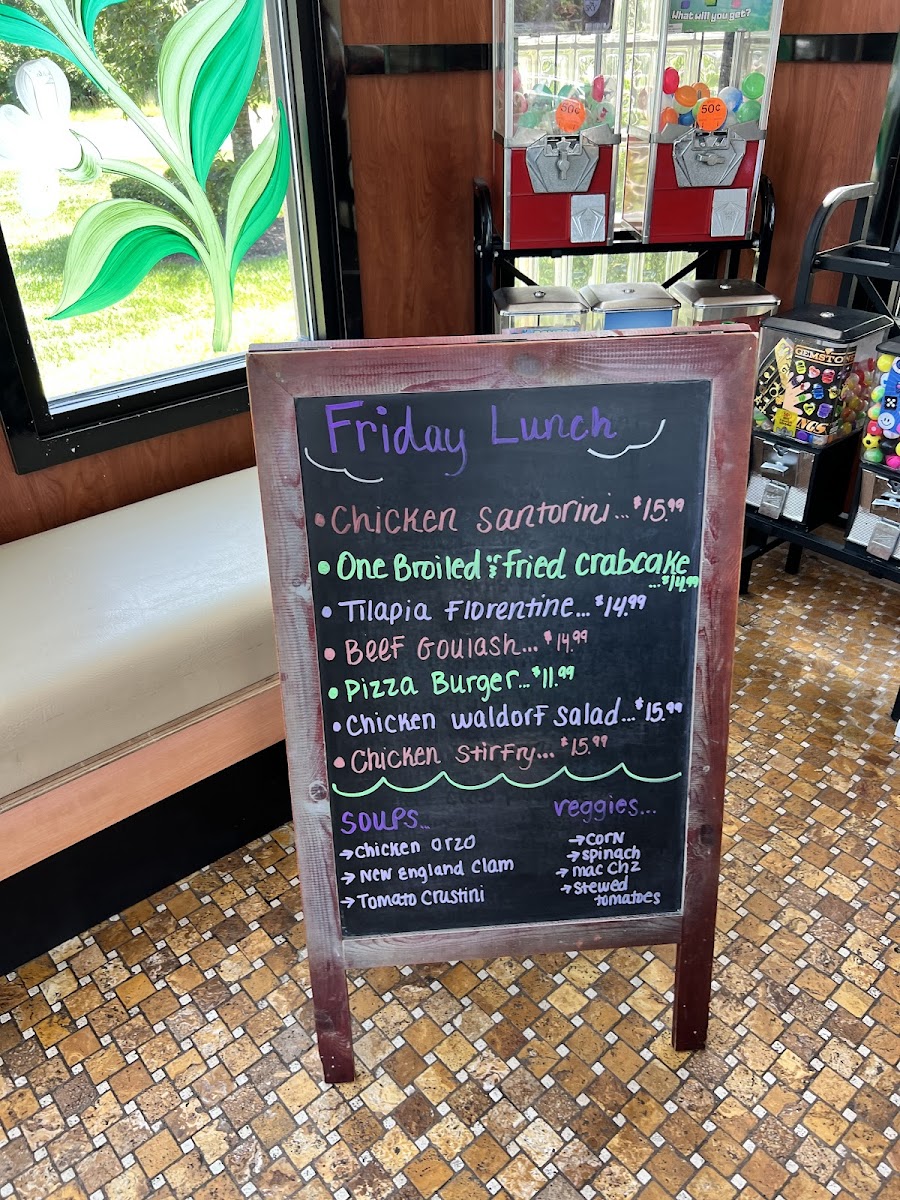 What will you get?
50¢
50¢
GEMSTONE
Friday Lunch
• Chicken Santorini...$15.99
• One Broiled or Fried Crabcake
...$14.99
• Tilapia Florentine...$14.99
• Beef Goulash...$14.99
• Pizza Burger...$11.99
• Chicken Waldorf Salad...$15.99
• Chicken Stirfry...$15.99
Soups...
→ Chicken Orzo
→ New England Clam
→ Tomato Crustini
Veggies...
→ Corn
→ Spinach
→ Mac Chz
→ Stewed
tomatoes